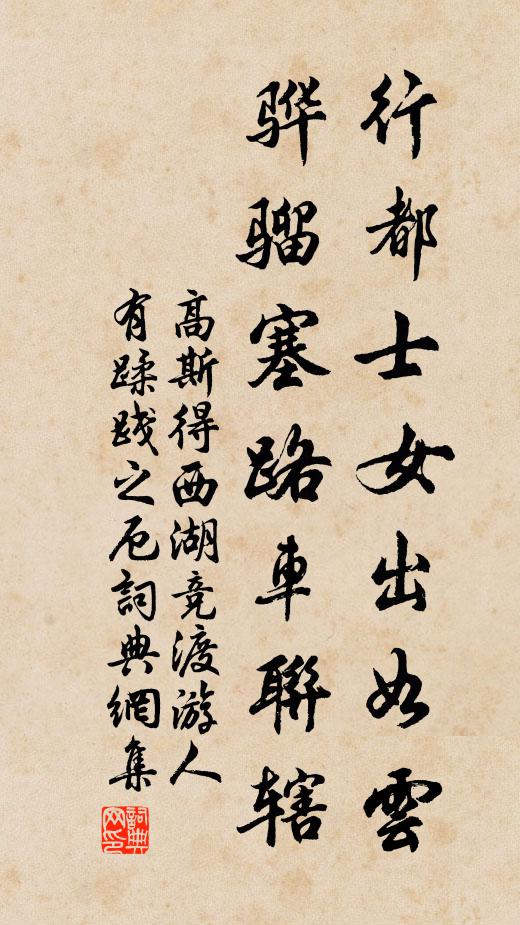 行都士女出如雲
骅骝塞路車聯辖
高斯得西湖竞渡游人
有蹂践之厄詞典網集
詞典网印